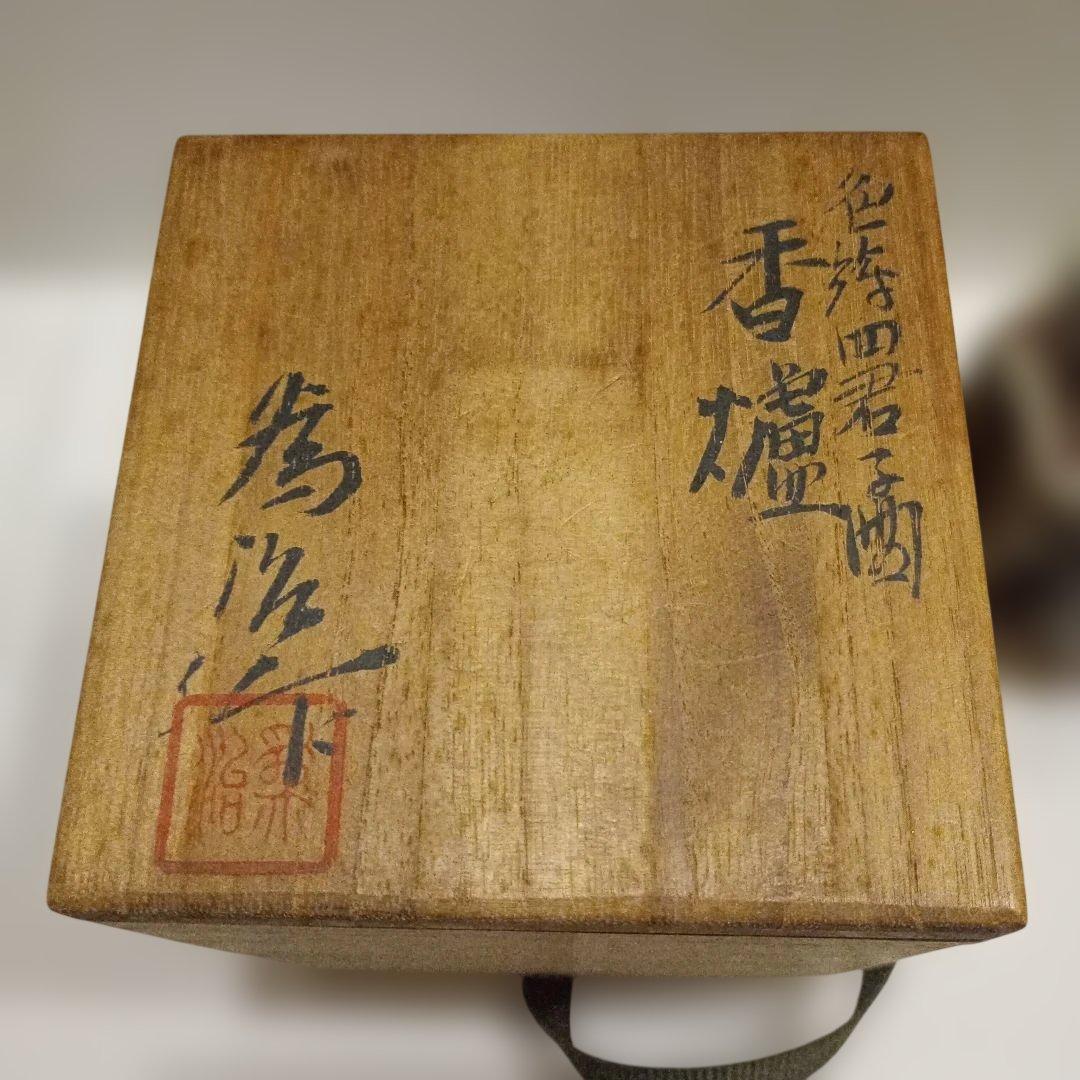 色絵四君子圖
香爐
為治作